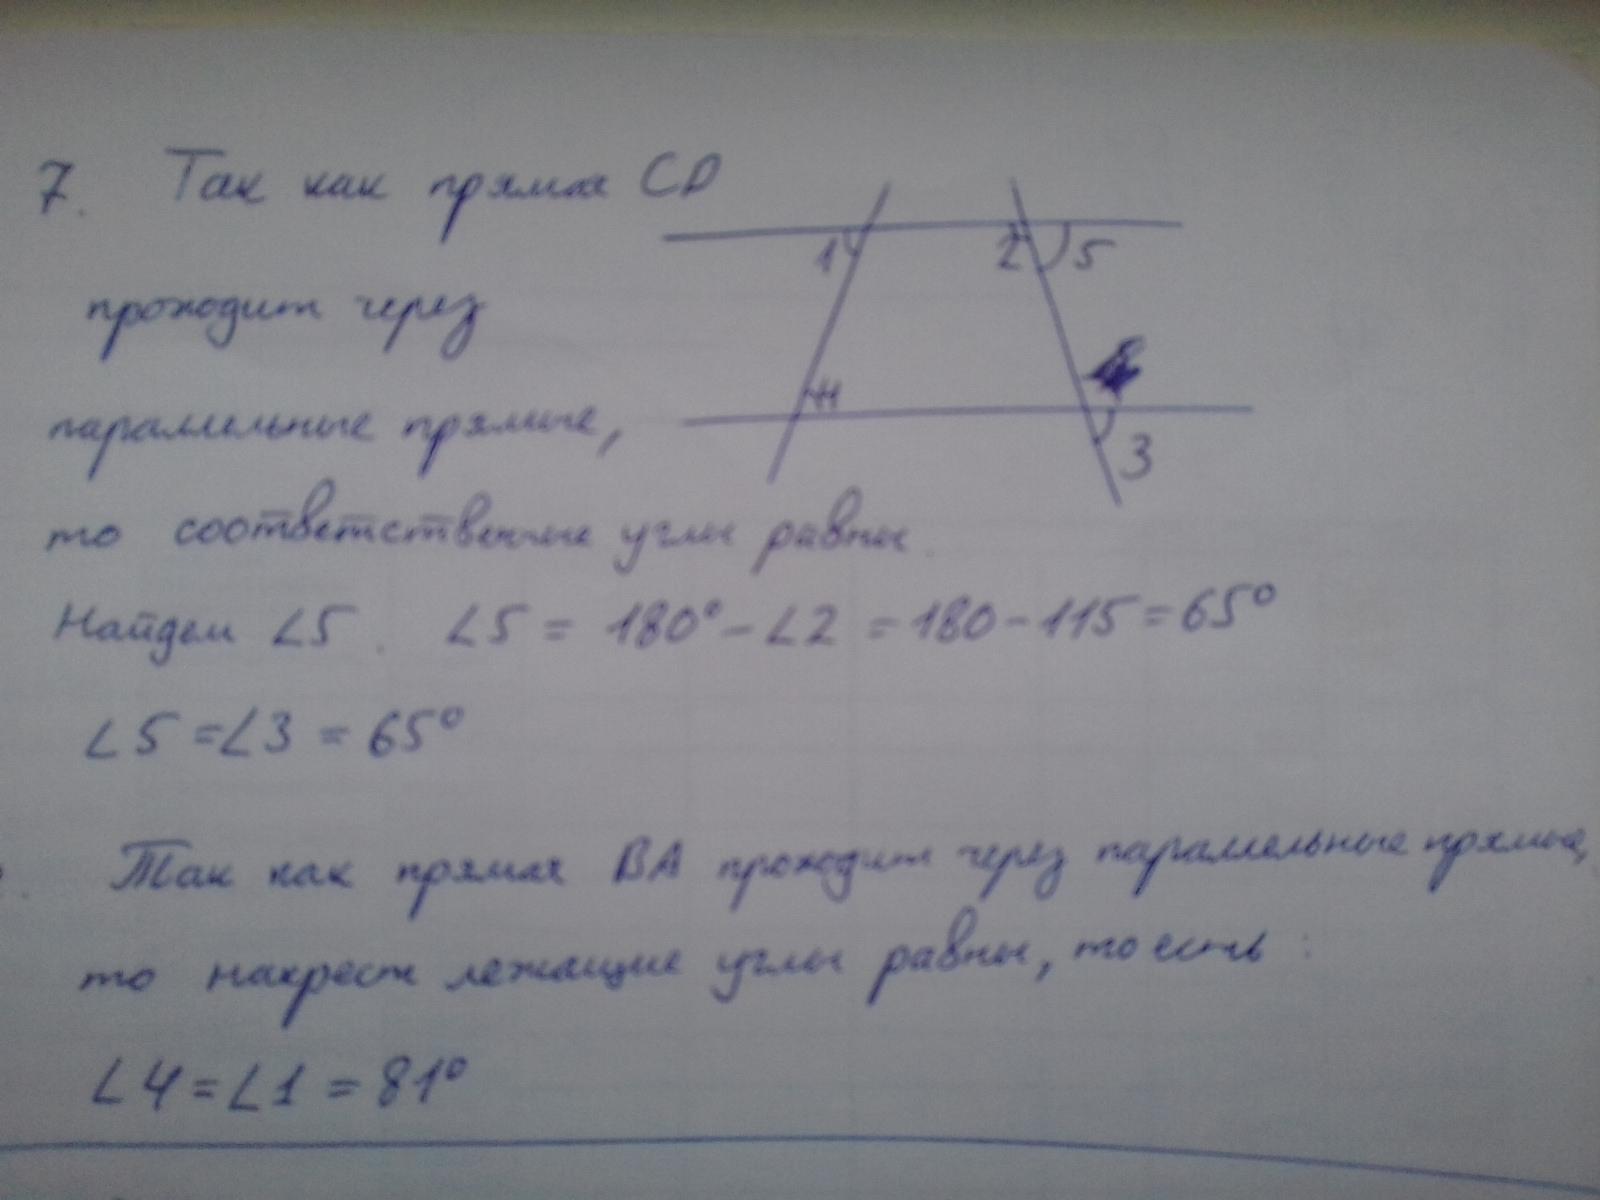 7. Так как прямая CD
1 2 5
проходит через
4
параллельные прямые,
3
то соответственные углы равны.
Найдем ∠5. ∠5 = 180° - ∠2 = 180 - 115 = 65°
∠5 = ∠3 = 65°
Так как прямая BA проходит через параллельные прямые,
то накрест лежащие углы равны, то есть :
∠4 = ∠1 = 81°